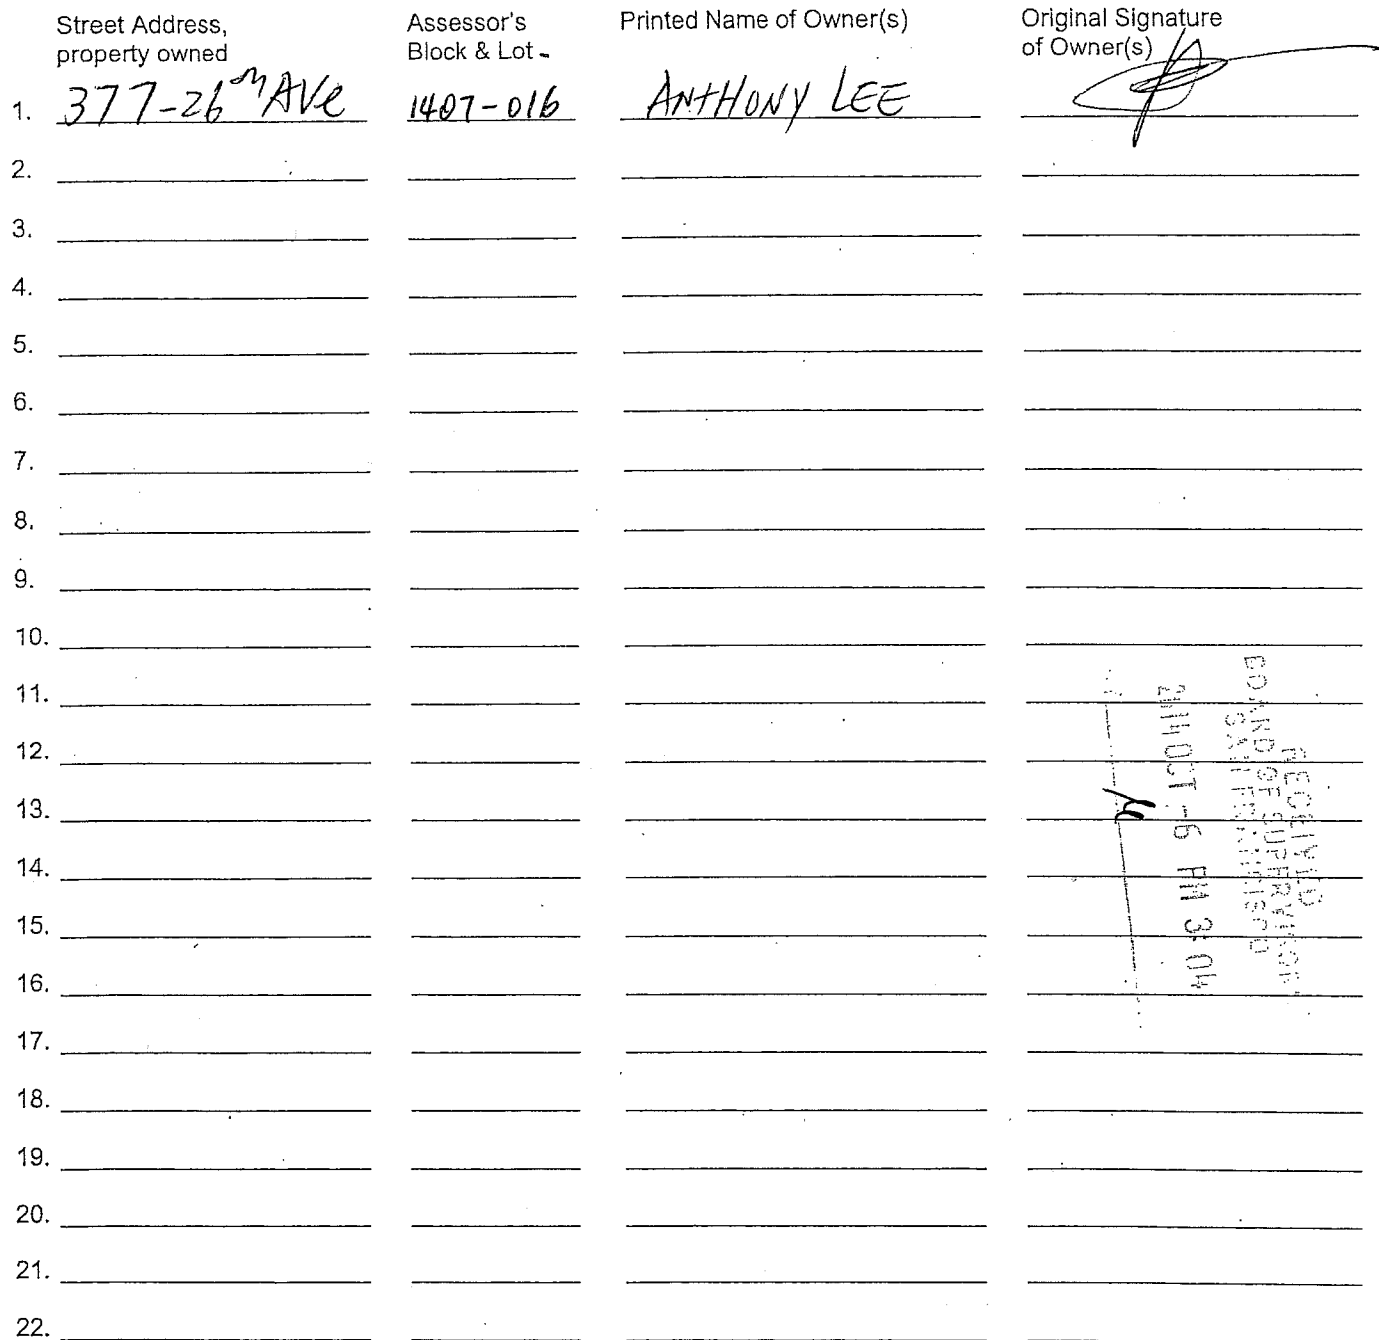 Street Address,
property owned
Assessor's
Block & Lot
Printed Name of Owner(s)
Original Signature
of Owner(s)
1. 377-26th AVe 1407-016 ANTHONY LEE
2.
3.
4.
5.
6.
7.
8.
9.
10.
11.
12.
13.
14.
15.
16.
17.
18.
19.
20.
21.
22.
RECEIVED
BOARD OF SUPERVISORS
SAN FRANCISCO
OCT -6 PM 3:04